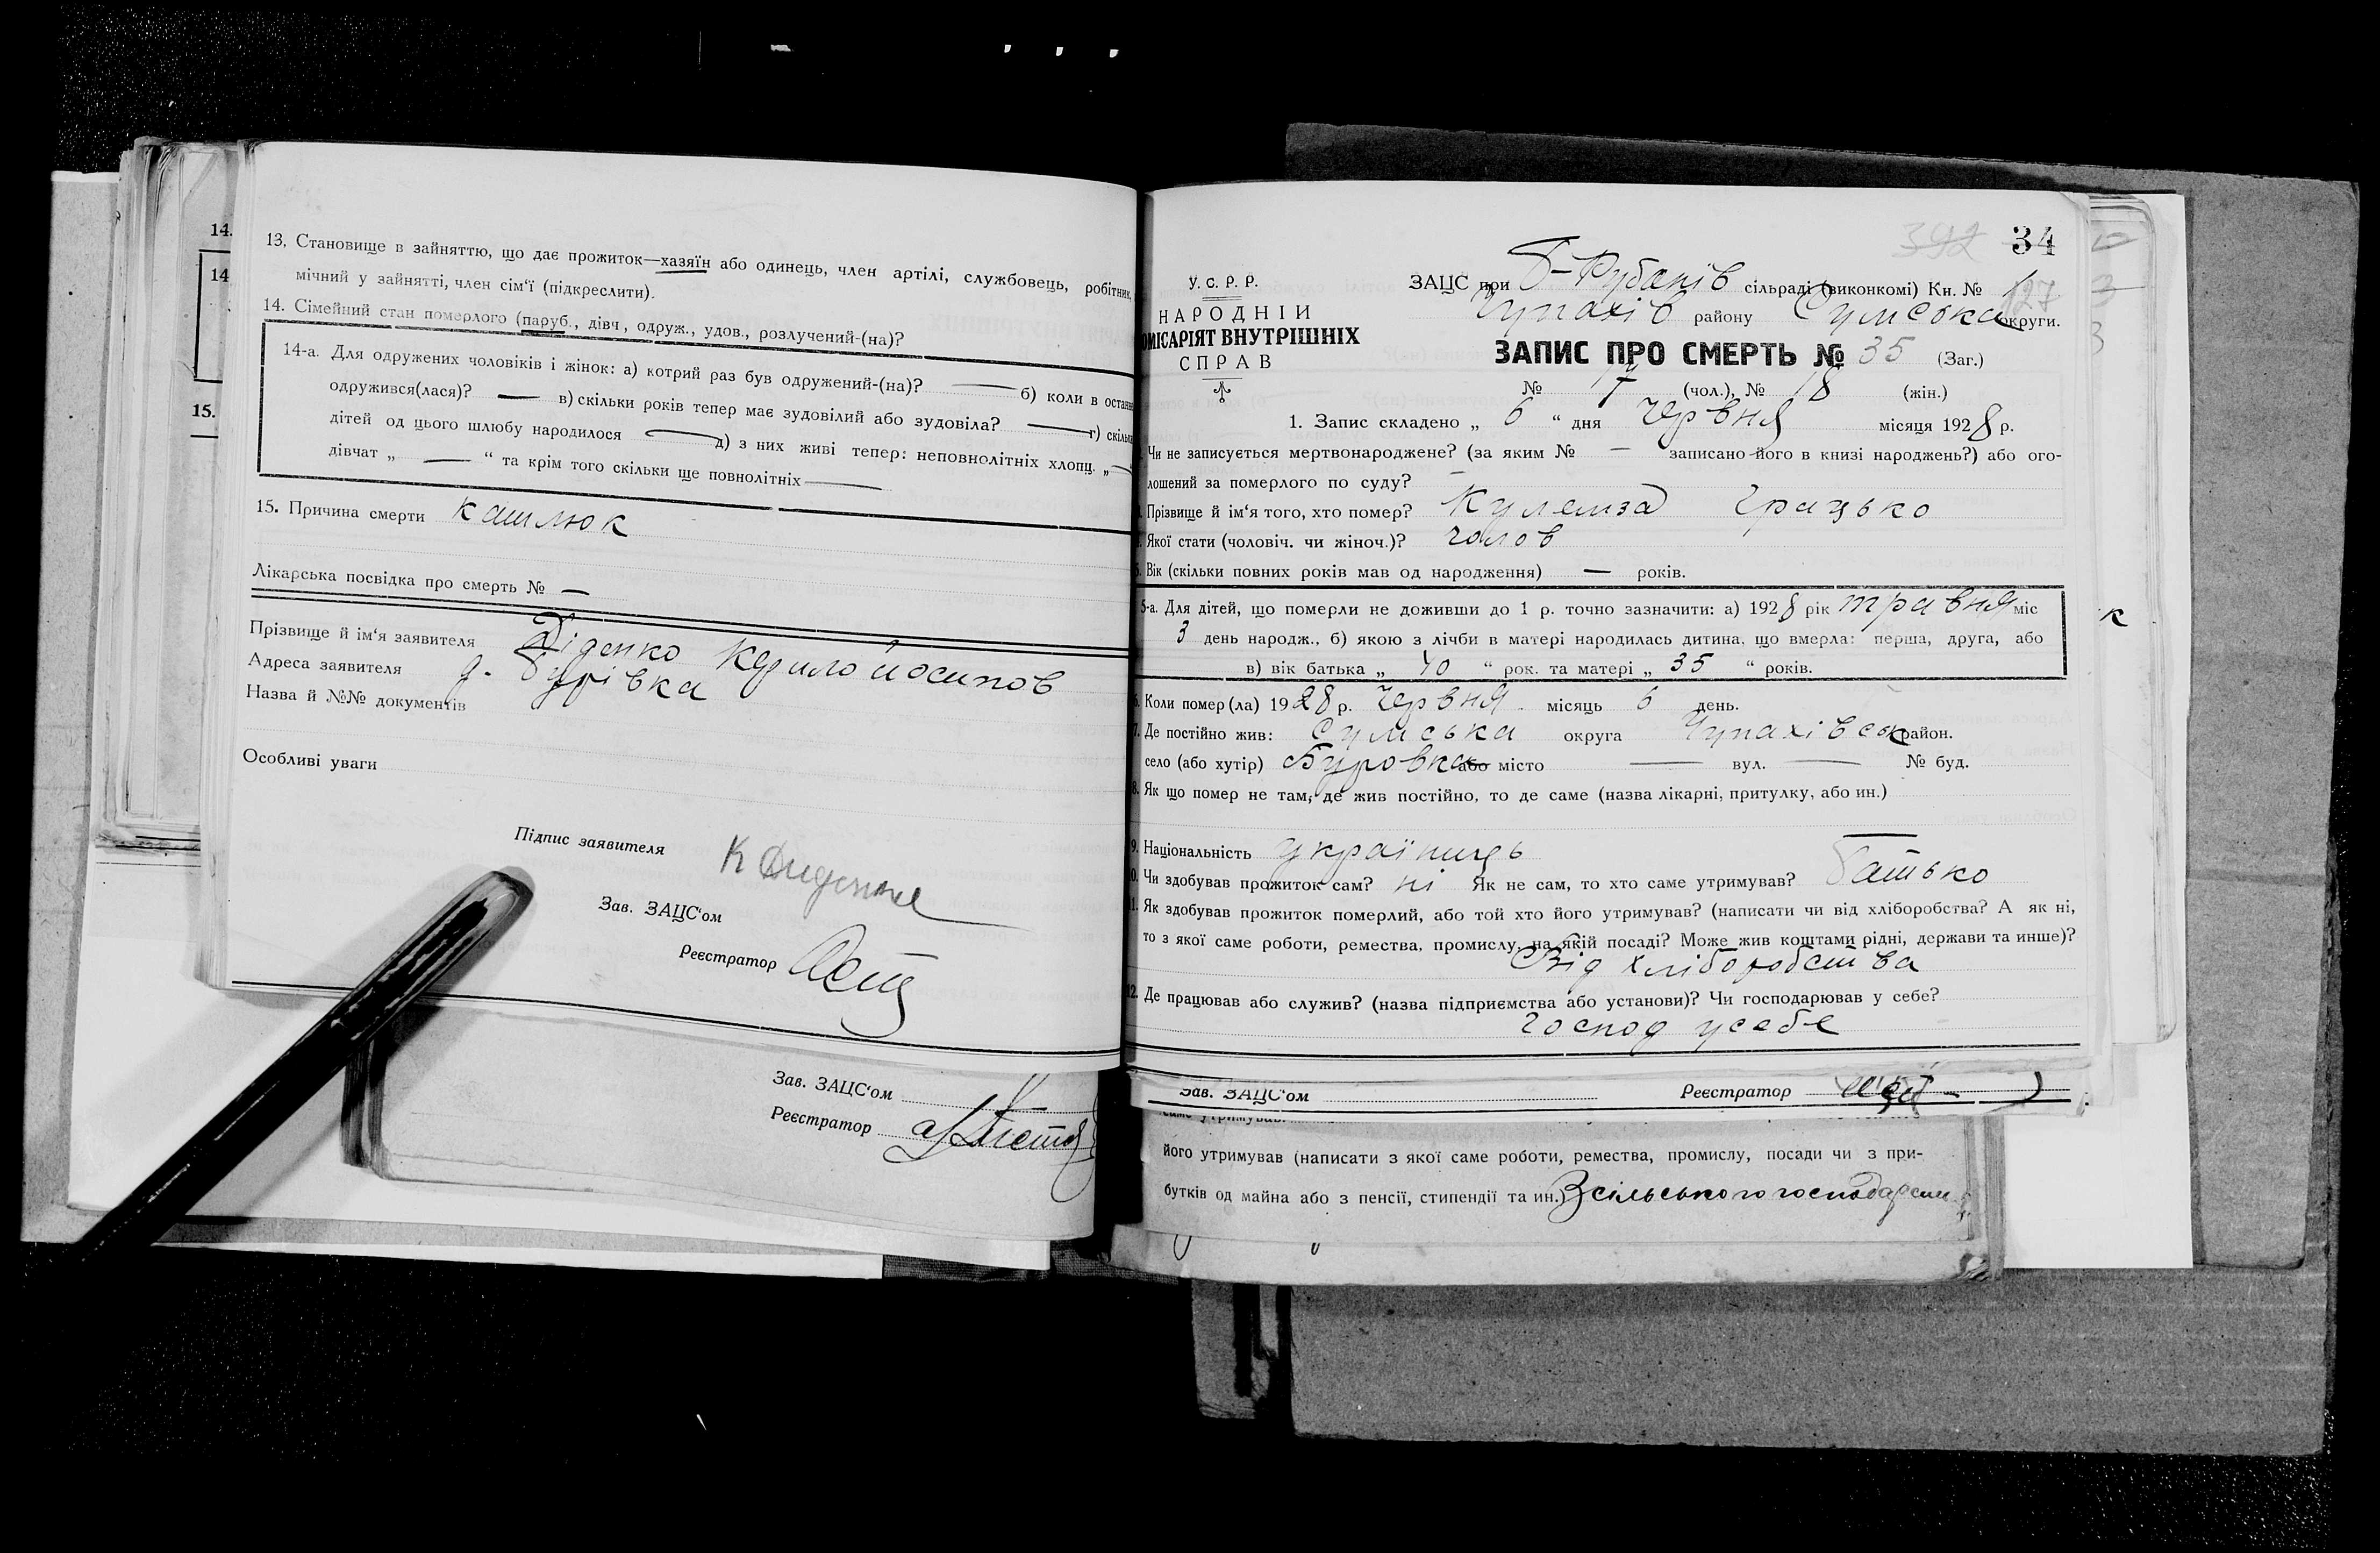 14.
14
15.
13. Становище в зайняттю, що дає прожиток—хазяїн або одинець, член артілі, службовець, робітник,
мічний у зайнятті, член сім'ї (підкреслити).
14. Сімейний стан померлого (паруб., дівч., одруж., удов., розлучений-(на)?
14-а. Для одружених чоловіків і жінок: а) котрий раз був одружений-(на)? — б) коли в останн
одружився(лася)? — в) скільки років тепер має зудовілий або зудовіла? — г) скільки
дітей од цього шлюбу народилося — д) з них живі тепер: неповнолітніх хлопц. „ —
дівчат „ — “ та крім того скільки ще повнолітніх —
15. Причина смерти кашлюк
Лікарська посвідка про смерть № —
Прізвище й ім'я заявителя Діденко Курило Йосипов
Адреса заявителя д. Бурівка
Назва й №№ документів
Особливі уваги
Підпис заявителя К Диденко
Зав. ЗАЦС'ом
Реєстратор
Зав. ЗАЦС'ом
Реєстратор
392 34
У. С. Р. Р.
НАРОДНІЙ
ОМІСАРІЯТ ВНУТРІШНІХ
СПРАВ
ЗАЦС при Б-Рубанів сільраді (виконкомі) Кн. № 1
127
Чупахів району Сумська округи.
ЗАПИС ПРО СМЕРТЬ № 35 (Заг.)
№ 17 (чол.), № 18 (жін.)
1. Запис складено „ 6 “ дня червня місяця 1928 р.
Чи не записується мертвонароджене? (за яким № — записано його в книзі народжень?) або ого-
лошений за померлого по суду? —
Прізвище й ім'я того, хто помер? Кулемза Грицько
Якої стати (чоловіч. чи жіноч.)? чолов
5. Вік (скільки повних років мав од народження) — років.
5-а. Для дітей, що померли не доживши до 1 р. точно зазначити: а) 1928 рік травня міс
3 день народж., б) якою з лічби в матері народилась дитина, що вмерла: перша, друга, або
в) вік батька „ 40 “ рок. та матері „ 35 “ років.
6. Коли помер(ла) 1928 р. червня місяць 6 день.
7. Де постійно жив: Сумська округа Чупахівськ район.
село (або хутір) Буровка або місто — вул. — № буд.
8. Як що помер не там, де жив постійно, то де саме (назва лікарні, притулку, або ин.)
9. Національність українець —
10. Чи здобував прожиток сам? ні Як не сам, то хто саме утримував? батько
11. Як здобував прожиток померлий, або той хто його утримував? (написати чи від хліборобства? А як ні,
то з якої саме роботи, ремества, промислу, на якій посаді? Може жив коштами рідні, держави та инше)?
Від хліборобства
12. Де працював або служив? (назва підприємства або установи)? Чи господарював у себе?
господ усебе
к
Зав. ЗАЦС'ом Реєстратор
саме утримував.
його утримував (написати з якої саме роботи, ремества, промислу, посади чи з при-
бутків од майна або з пенсії, стипендії та ин.) З сільського господарств